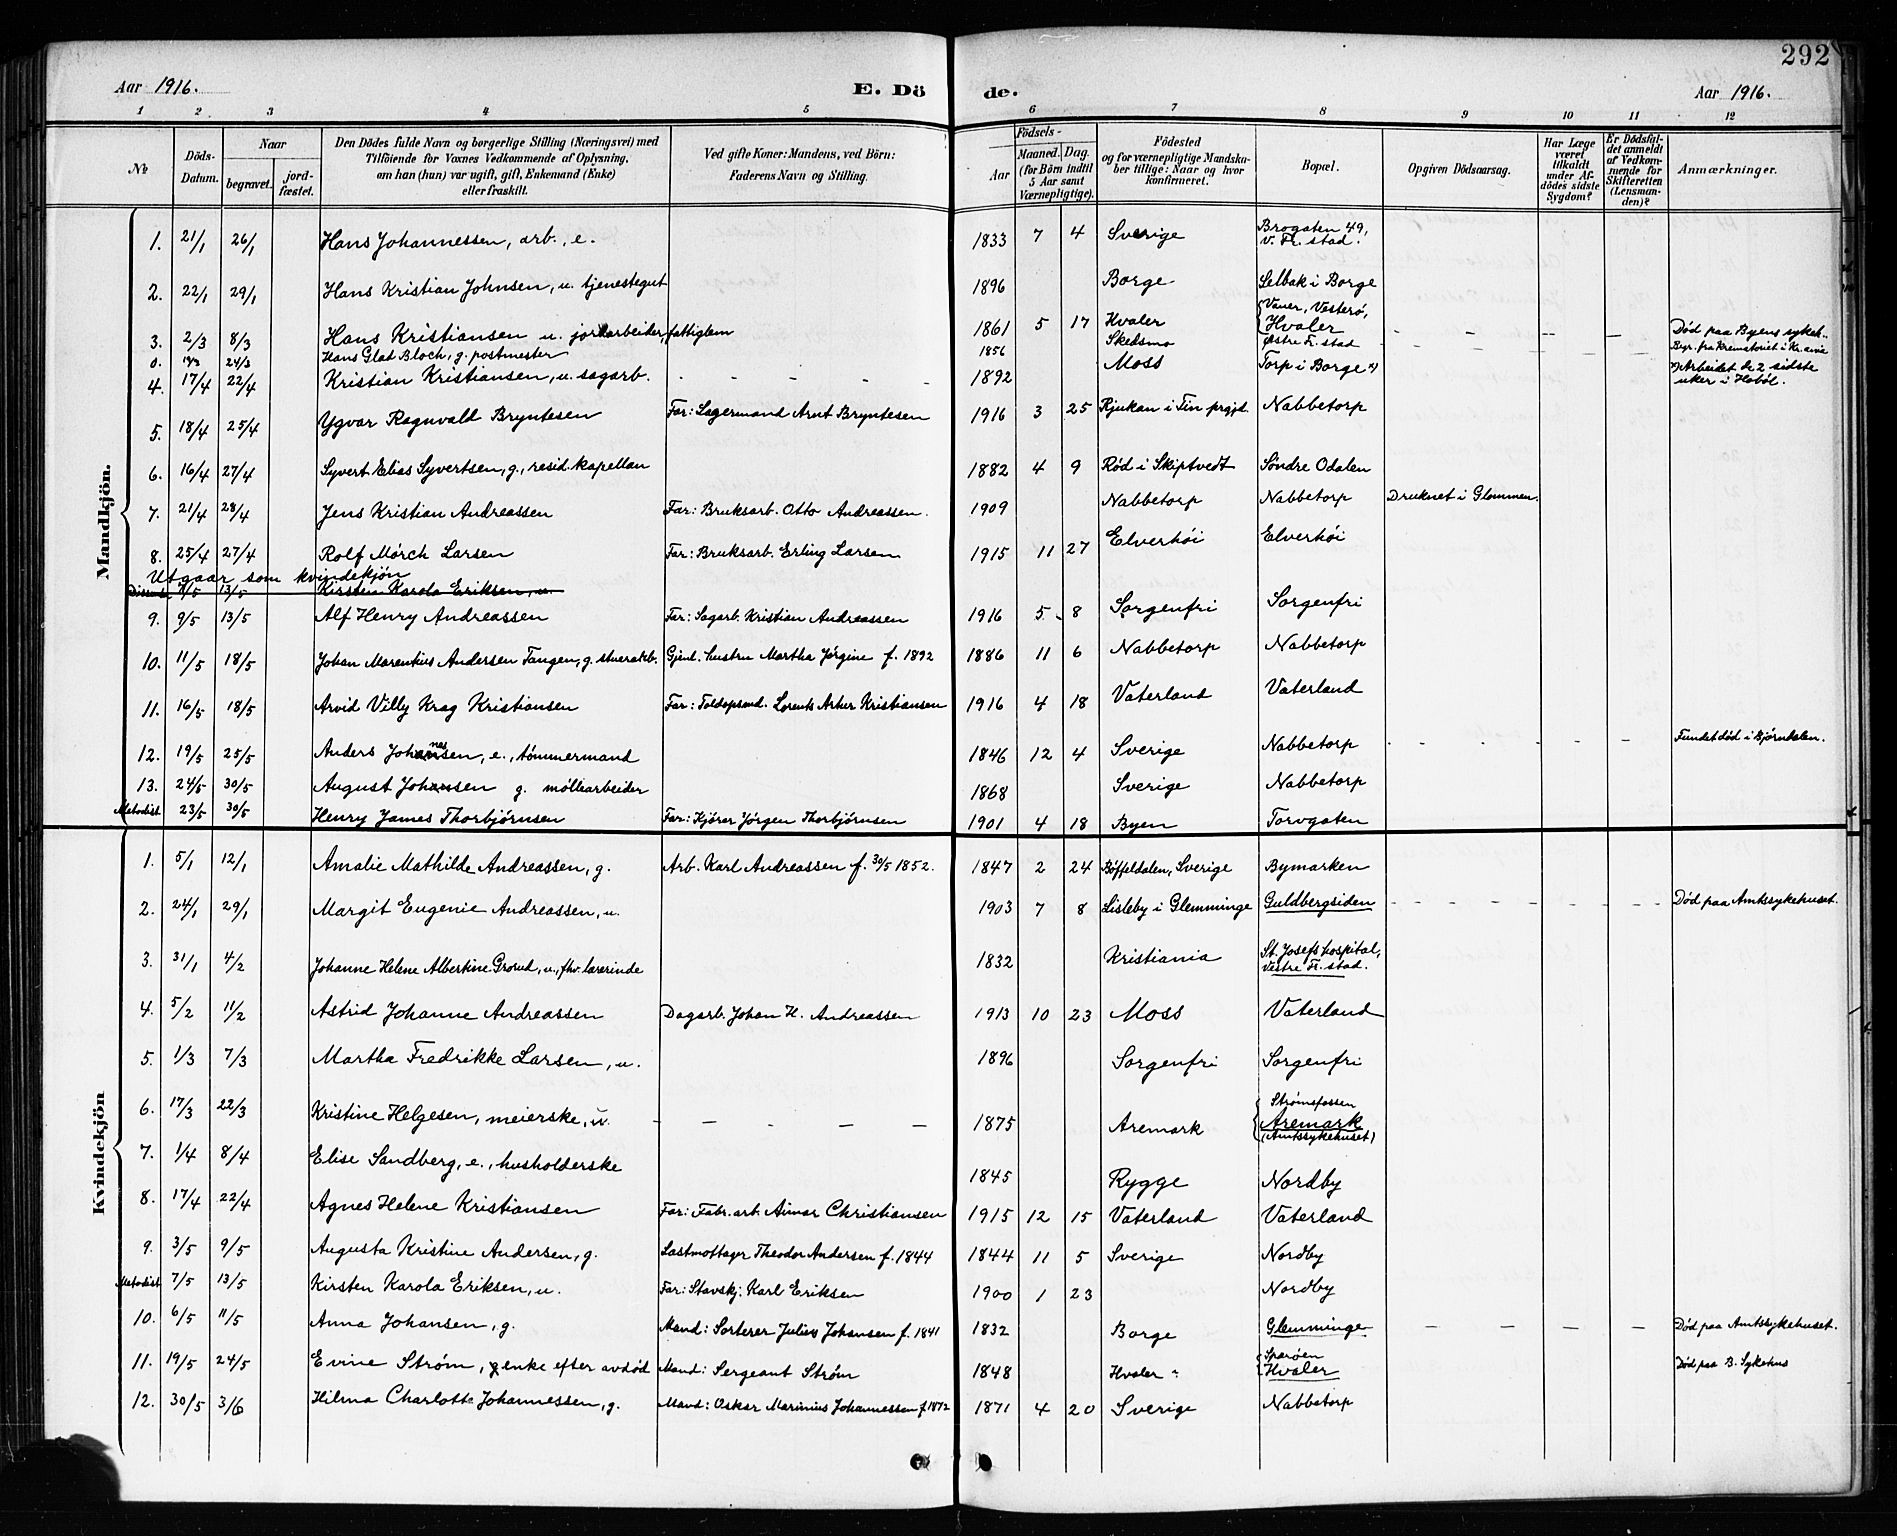 292
Aar 1916. E. Dö de. Aar 1916.
1 2 3 4 5 6 7 8 9 10 11 12
No. Döds-Datum. Naar begravet. jordfæstet. Den Dödes fulde Navn og borgerlige Stilling (Næringsvei) med Tilföiende for Voxnes Vedkommende af Oplysning, om han (hun) var ugift, gift, Enkemand (Enke) eller fraskilt. Ved gifte Koner: Mandens, ved Börn: Faderens Navn og Stilling. Födsels- Aar Maaned. Dag. (for Börn indtil 5 Aar samt Værnepligtige). Födested og for værnepligtige Mandskaber tillige: Naar og hvor konfirmeret. Bopæl. Opgiven Dödsaarsag. Har Læge været tilkaldt under Afdödes sidste Sygdom? Er Dödsfaldet anmeldt af Vedkommende for Skifteretten (Lensmanden)? Anmærkninger.
Mandkjön.
1. 21/1 26/1 Hans Johannessen, arb., e. 1833 7 4 Sverige Brogaten 49, v. Fr. stad.
2. 22/1 29/1 Hans Kristian Johnsen, u. tjenestegut 1896 Borge Selbak i Borge
3. 2/3 8/3 Hans Kristiansen u. jordarbeider, fattiglem 1861 5 17 Hvaler Vauer, Vesterø, Hvaler - - - - Død paa Byens sykeh.
0. 24/3 Hans Glad Bloch, g. postmester 1856 Skedsmo Østre Fr. stad Begr. fra Krematoriet i Kr.ania
4. 17/4 22/4 Kristian Kristiansen, u. sagarb. - - - - - 1892 Moss Torp i Borge *) *) Arbeidet de 2 sidste uker i Hobøl.
5. 18/4 25/4 Ygvar Ragnvald Bryntesen Far: Lagermand Arnt Bryntesen 1916 3 25 Rjukan i Tin prgjd. Nabbetorp
6. 16/4 27/4 Syvert Elias Syvertsen, g., resid. kapellan 1882 4 9 Rød i Skiptvedt Søndre Odalen
7. 21/4 28/4 Jens Kristian Andreassen Far: Bruksarb. Otto Andreassen. 1909 Nabbetorp Nabbetorp Druknet i Glommen.
8. 25/4 27/4 Rolf Mørch Larsen Far: Bruksarb. Erling Larsen 1915 11 27 Elverhöi Elverhöi
Utgaar som kvindekjön
7/5 13/5 Kirsten Karola Eriksen, u.
9. 9/5 13/5 Alf Henry Andreassen Far: Sagarb. Kristian Andreassen 1916 5 8 Sorgenfri Sorgenfri
10. 11/5 18/5 Johan Marentius Andersen Tangen, g. stuerarb. Gjenl. hustru Martha Jørgine f. 1892 1886 11 6 Nabbetorp Nabbetorp
11. 16/5 18/5 Arvid Villy Krag Kristiansen Far: Toldopsynd. Lorents Artur Kristiansen 1916 4 18 Vaterland Vaterland
12. 19/5 25/5 Anders Johannessen, e., tømmermand 1846 12 4 Sverige Nabbetorp - - - - Fundet død i Bjørndalen.
13. 24/5 30/5 August Johansen g. møllearbeider 1868 Sverige Nabbetorp
Metodist 23/5 30/5 Henry James Thorbjørnsen Far: Kjører Jørgen Thorbjørnsen 1901 4 18 Byen Torvgaten
Kvindekjön
1. 5/1 12/1 Amalie Mathilde Andreassen, g. Arb. Karl Andreassen f. 30/5 1852. 1847 2 24 Bøffeldalen, Sverige Bymarken
2. 24/1 29/1 Margit Eugenie Andreassen, u. 1903 7 8 Lisleby i Glemminge Guldbergsiden - - - - Død paa Amtssykehuset.
3. 31/1 4/2 Johanne Helene Albertine Grorud, u., fhv. lærerinde 1832 Kristiania St. Josefs hospital, Vestre Fr. stad.
4. 5/2 11/2 Astrid Johanne Andreassen Dagarb. Johan H. Andreassen 1913 10 23 Moss Vaterland
5. 1/3 7/3 Martha Fredrikke Larsen, u. 1896 Sorgenfri Sorgenfri
6. 17/3 22/3 Kristine Helgesen, meierske, u. - - - - - 1875 Aremark Strømsfossen Aremark (Amtssykehuset)
7. 1/4 8/4 Elise Sandberg, e., husholderske 1845 Rygge Nordby
8. 17/4 22/4 Agnes Helene Kristiansen Far: Fabr. arb. Aimar Christiansen 1915 12 15 Vaterland Vaterland
9. 3/5 9/5 Augusta Kristine Andersen, g. Lastmottager Theodor Andersen f. 1844 1844 11 5 Sverige Nordby
Metodist 7/5 13/5 Kirsten Karola Eriksen, u. Far: Stavskj. Karl Eriksen 1900 1 23 Nordby
10. 6/5 11/5 Anna Johansen, g. Mand: Sorterer Julius Johansen f. 1841 1832 Borge Glemminge - - - - Død paa Amtssykehuset.
11. 19/5 24/5 Evine Strøm, enke efter avdød Mand: Sergeant Strøm 1848 Hvaler Sparøen Hvaler Død paa B. Sykehus
12. 30/5 3/6 Hilma Charlotte Johannessen, g. Mand: Oskar Marinius Johannessen f. 1872 1871 4 20 Sverige Nabbetorp